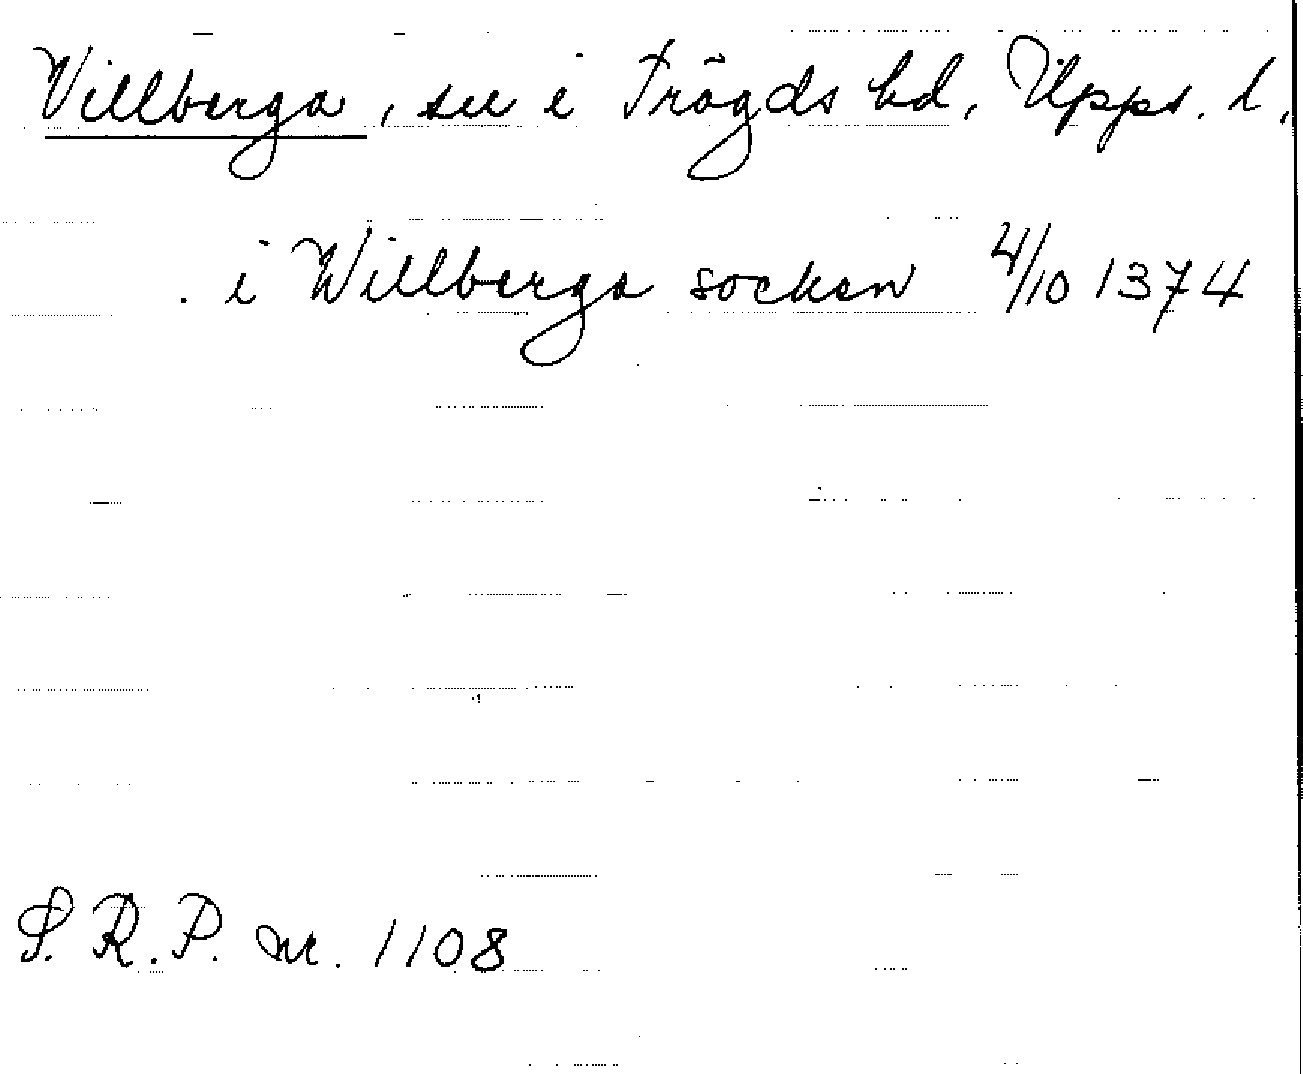 Villberga, sn i Trögds hd, Upps. l.
. i Willberga socken 4/10 1374
S. R. P. nr. 1108